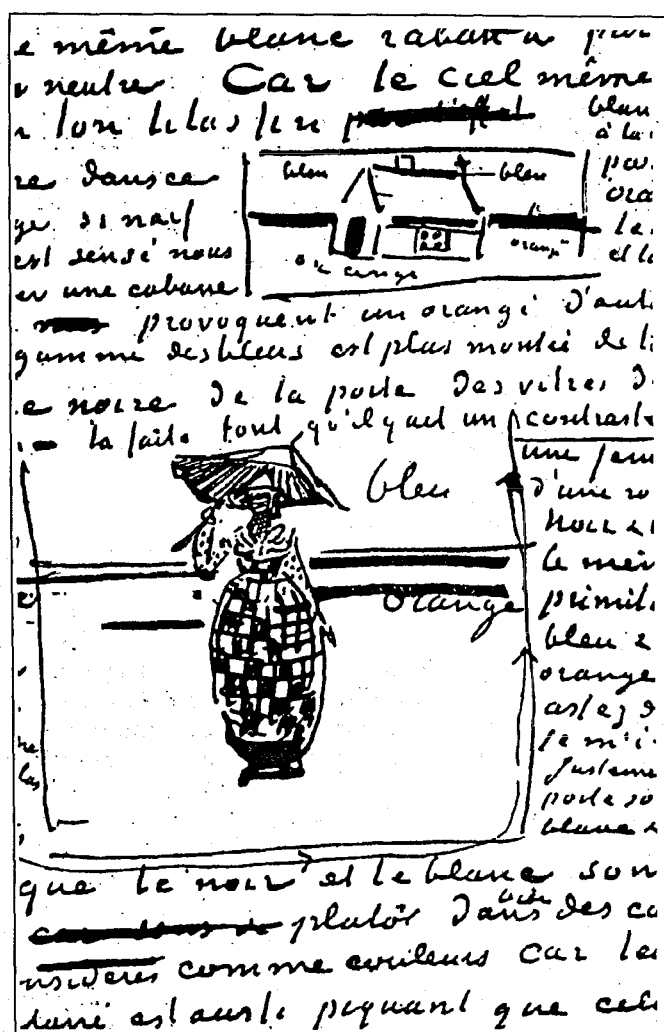 e même blanc rabattu par
neutre Car le ciel même
ton lilas fin
blan
à la
re dans ce
ge si naïf
est sensé nous
er une cabane
bleu
bleu
orange
orange
ora
la
et la
provoquent un orangé d'aut
gamme des bleus est plus montée de
e noire de la porte des vitres d
la faîte font qu'il y ait un contraste
bleu
orange
une fem
d'une ro
noir et
le mêm
primit
bleu e
orange
assez d
je m'i
justeme
porte so
blanc e
que le noir et le blanc son
plutôt dans des ca
nsidérés comme couleurs car leu
tané est aussi piquant que celu